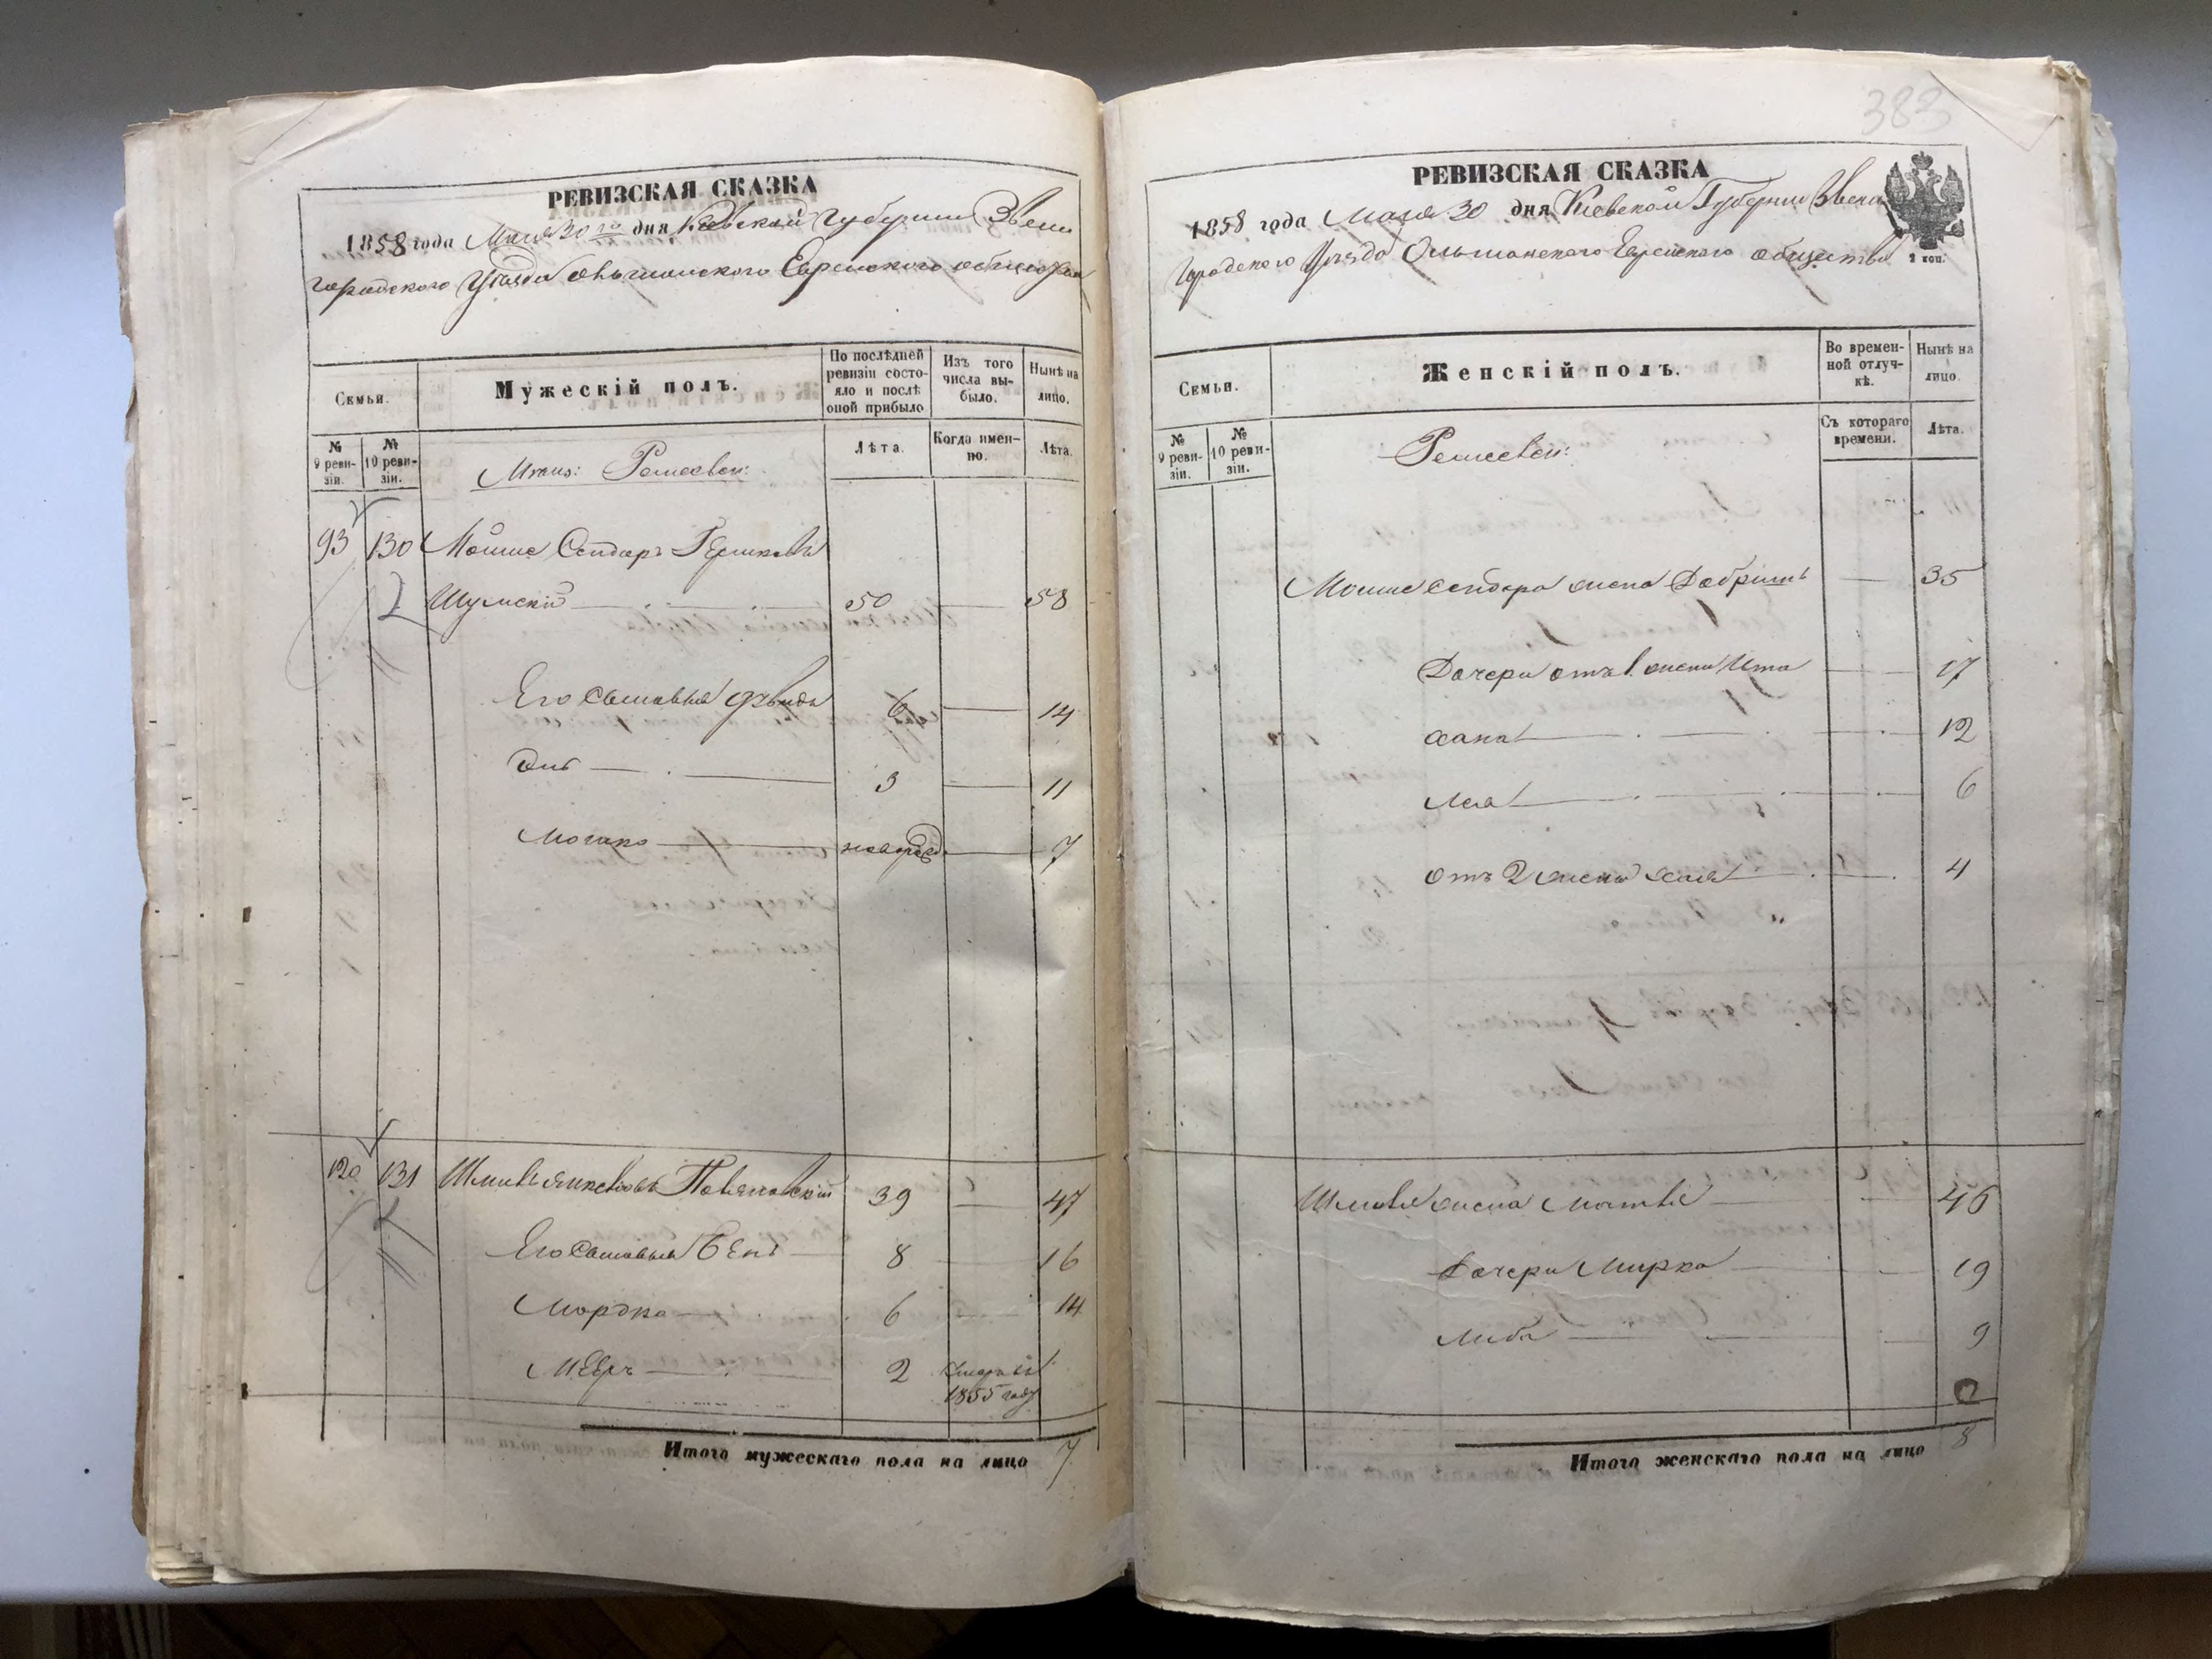 РЕВИЗСКАЯ СКАЗКА
1858 года Мая 30 го дня Киевской Губернии Звени
городского Уѣзда Ольшанского Еврейского общества
Семьи.
Мужескій полъ.
По послѣдней ревизіи состояло и послѣ оной прибыло
Изъ того числа выбыло.
Нынѣ на лицо.
№ 9 ревизіи.
№ 10 ревизіи.
Лѣта.
Когда именно.
Лѣта.
93 130 Мошие Сендеръ Гершковъ
Шумскій 50 58
Его Сыновья 6 14
3 11
Мошко новорожд. 7
120 131 Шмилъ Янкеловъ 39 47
Его Сыновья Бенъ 8 16
Мордко 6 14
Мееръ 2 Умеръ въ
1855 году
Итого мужескаго пола на лицо 7
383
РЕВИЗСКАЯ СКАЗКА
1858 года Мая 30 дня Киевской Губернии Звени
городского Уѣзда Ольшанского Еврейского общества
1 коп.
Семьи.
Женскій полъ.
Во временной отлучкѣ.
Нынѣ на лицо.
№ 9 ревизіи.
№ 10 ревизіи.
Съ котораго времени.
Лѣта.
Мошие Сендера жена Добришъ 35
Дочери отъ 1 жены Ита 17
Хана 12
Лея 6
отъ 2 жены Хая 4
Шмиля жена 46
Дочери Мирка 19
Либа 9
2
Итого женскаго пола на лицо 8